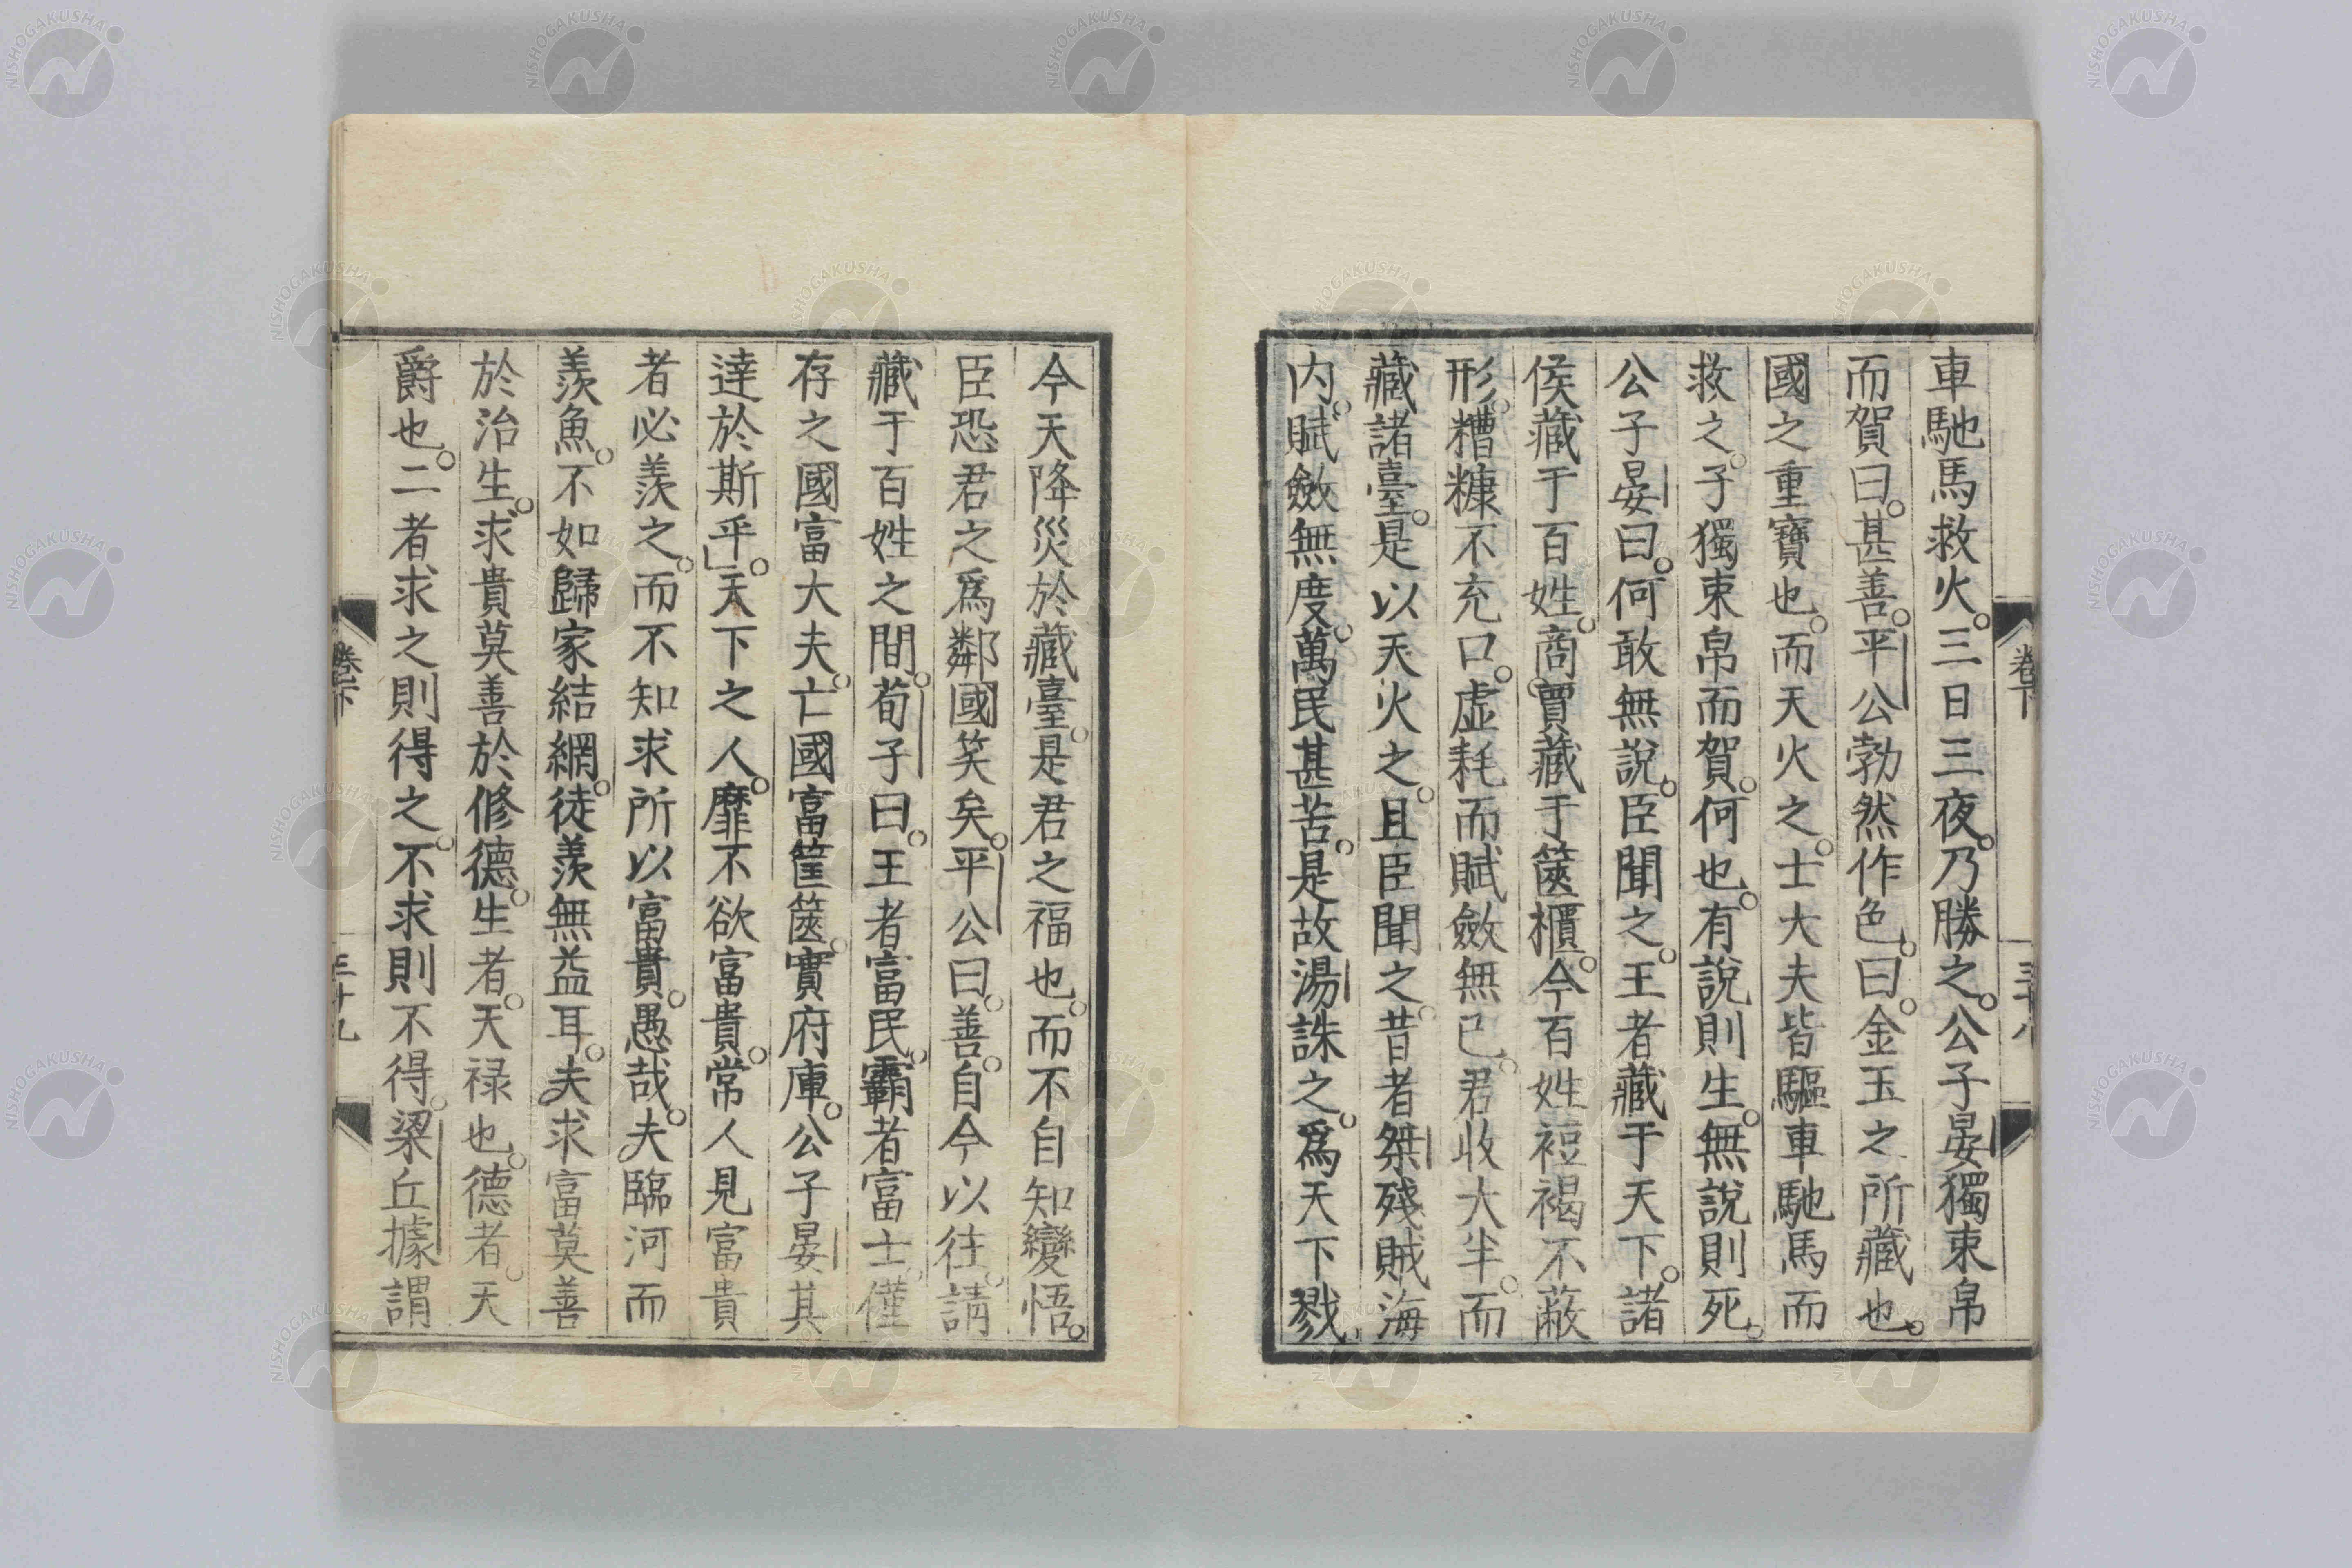 車馳馬救火。三日三夜。乃勝之。公子晏獨束帛
而賀曰。甚善。平公勃然作色。曰。金玉之所藏也。
國之重寶也。而天火之。士大夫皆驅車馳馬而
救之。子獨束帛而賀。何也。有說則生。無說則死。
公子晏曰。何敢無說。臣聞之。王者藏于天下。諸
侯藏于百姓。商賈藏于篋櫃。今百姓裋褐不蔽
形。糟糠不充口。虛耗而賦斂無已。君收大半。而
藏諸臺。是以天火之。且臣聞之。昔者桀殘賊海
內。賦斂無度。萬民甚苦。是故湯誅之。爲天下戮。
卷下
三十八
今天降災於藏臺。是君之福也。而不自知變悟。
臣恐君之爲鄰國笑矣。平公曰。善。自今以往。請
藏于百姓之間。荀子曰。王者富民。霸者富士。僅
存之國富大夫。亡國富筐篋。實府庫。公子晏其
達於斯乎」。天下之人。靡不欲富貴。常人見富貴
者必羨之。而不知求所以富貴。愚哉。夫臨河而
羨魚。不如歸家結網。徒羨無益耳。夫求富莫善
於治生。求貴莫善於修德。生者。天祿也。德者。天
爵也。二者求之則得之。不求則不得。梁丘據謂
卷下
三十九
NISHOGAKUSHA